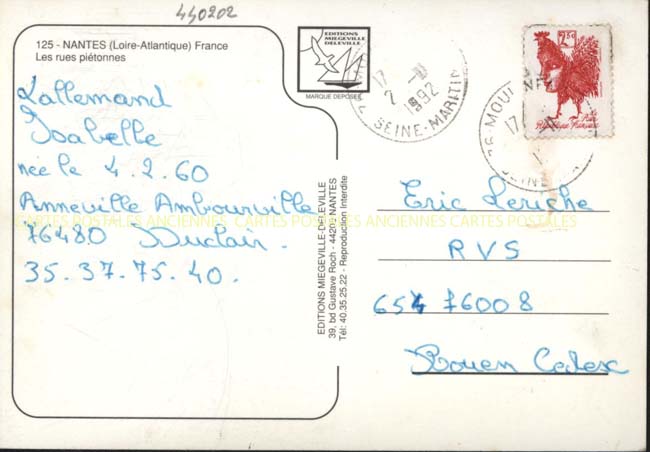 440202
125 - NANTES (Loire-Atlantique) France
Les rues piétonnes
EDITIONS
MIEGEVILLE
DELEVILLE
MARQUE DEPOSEE
17
2 - 11
1992
SEINE-MARITIME
2,50
République Française
76-MOU
17
Lallemand
Isabelle
née le 4.2.60
Anneville Ambourville
76480 Duclair.
35.37.75.40.
EDITIONS MIEGEVILLE-DELEVILLE
39, bd Gustave Roch - 44200 NANTES
Tél: 40.35.25.22 - Reproduction Interdite
Eric Leriche
RVS
654 76008
Rouen Cedex
CARTES POSTALES ANCIENNES CARTES POSTALES ANCIENNES CARTES POSTALES